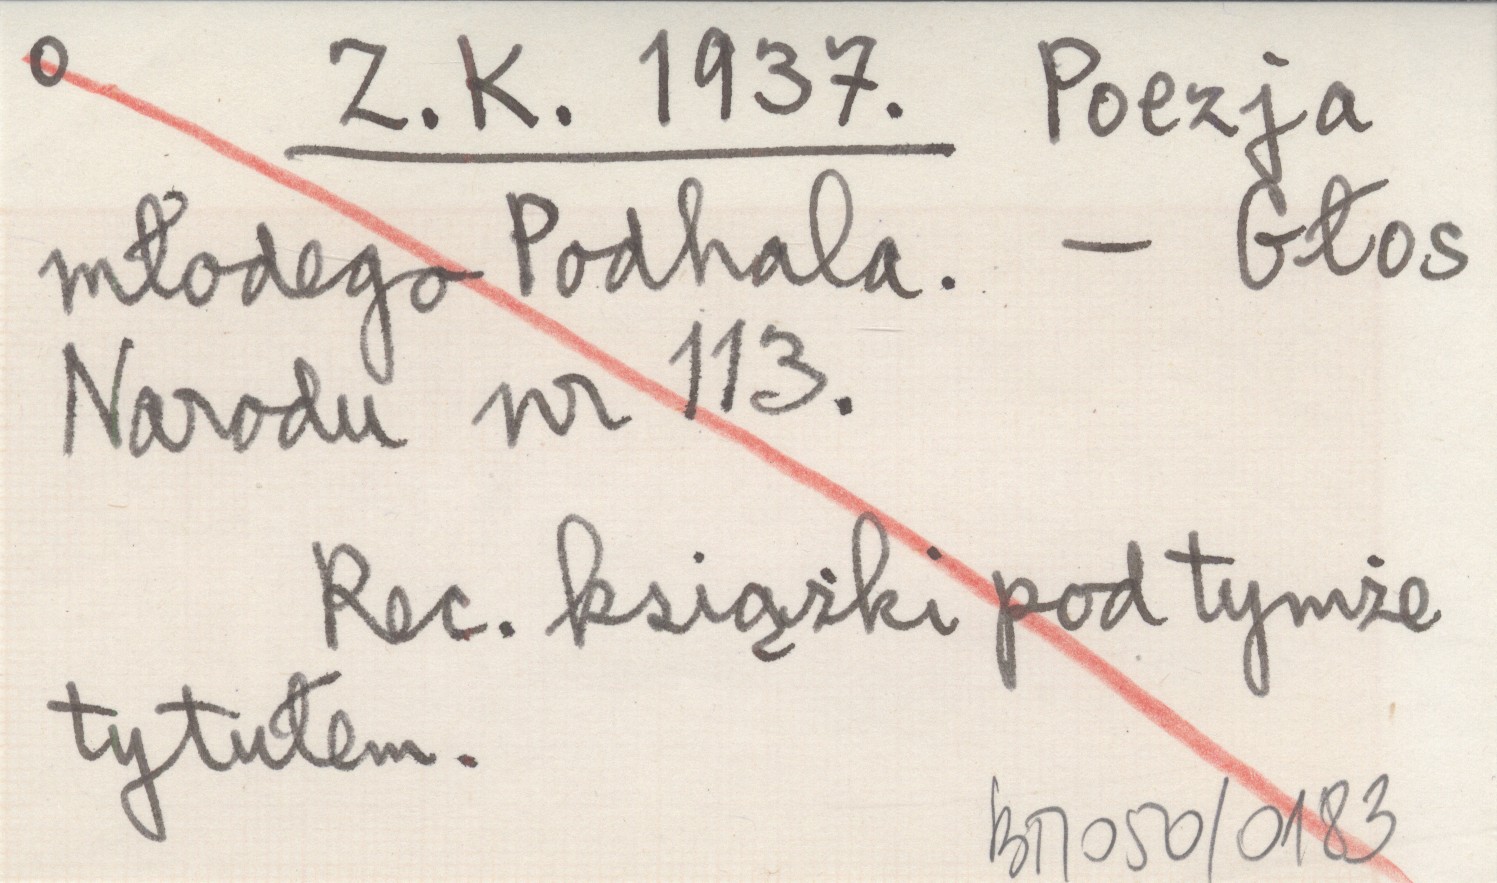 o Z.K. 1937. Poezja
młodego Podhala. — Głos
Narodu nr 113.
Rec. książki pod tymże
tytułem.
BN050/0183